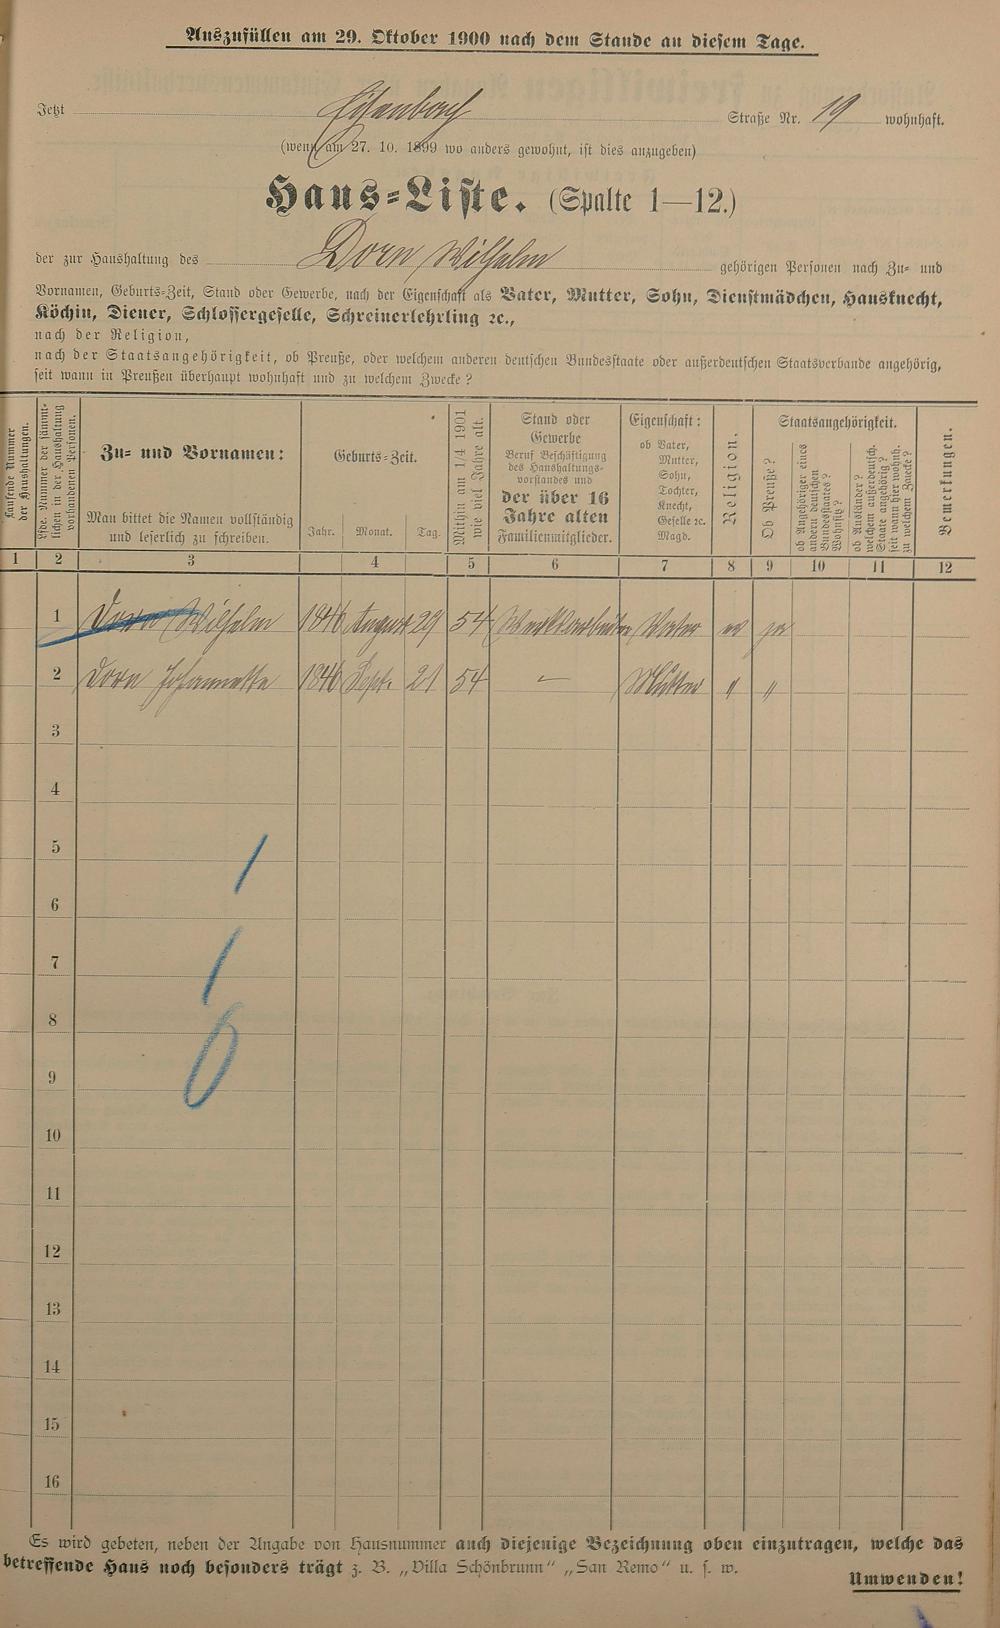 Auszufüllen am 29. Oktober 1900 nach dem Stande an diesem Tage.
Jetzt Eschenbach Straße Nr. 19 wohnhaft.
(wenn am 27. 10. 1899 wo anders gewohnt, ist dies anzugeben)
Haus-Liste. (Spalte 1—12.)
der zur Haushaltung des Dorn Wilhelm gehörigen Personen nach Zu- und
Vornamen, Geburts-Zeit, Stand oder Gewerbe, nach der Eigenschaft als Vater, Mutter, Sohn, Dienstmädchen, Hausknecht,
Köchin, Diener, Schlossergeselle, Schreinerlehrling ꝛc.,
nach der Religion,
nach der Staatsangehörigkeit, ob Preuße, oder welchem anderen deutschen Bundesstaate oder außerdeutschen Staatsverbande angehörig,
seit wann in Preußen überhaupt wohnhaft und zu welchem Zwecke?
Laufende Nummer
der Haushaltungen.
Lfde. Nummer der sämmt-
lichen in der Haushaltung
vorhandenen Personen.
Zu- und Vornamen:
Man bittet die Namen vollständig
und leserlich zu schreiben.
Geburts-Zeit.
Jahr. Monat. Tag.
Mithin am 1/4 1901
wie viel Jahre alt.
Stand oder
Gewerbe
Beruf Beschäftigung
des Haushaltungs-
vorstandes und
der über 16
Jahre alten
Familienmitglieder.
Eigenschaft:
ob Vater,
Mutter,
Sohn,
Tochter,
Knecht,
Geselle ꝛc.
Magd.
Religion.
Staatsangehörigkeit.
Ob Preuße?
ob Angehöriger eines
andern deutschen
Bundesstaates?
Wohnsitz?
ob Ausländer?
welchem außerdeutsch.
Staate angehörig?
seit wann hier wohnh.
zu welchem Zwecke?
Bemerkungen.
1 2 3 4 5 6 7 8 9 10 11 12
1 Dorn Wilhelm 1846 August 29 54 Vater ev ja
2 Dorn Johannette 1846 Sept. 21 54 — Mutter " "
3
4
5
6
7
8
9
10
11
12
13
14
15
16
Es wird gebeten, neben der Angabe von Hausnummer auch diejenige Bezeichnung oben einzutragen, welche das
betreffende Haus noch besonders trägt z. B. „Villa Schönbrunn“ „San Remo“ u. s. w.
Umwenden!